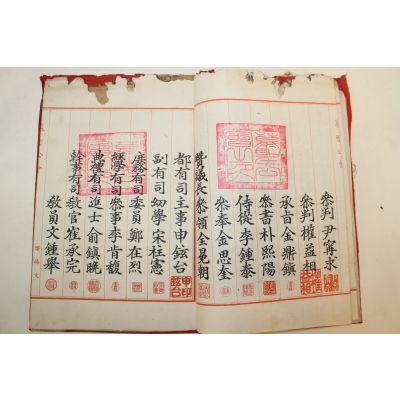 參判 尹甯求
參判 權益相
承旨 金鼎鎭
參書 朴熙陽
侍從 李鍾泰
參奉 金思奎
贊議長 參領 全晃朝
都有司 主事 申鉉台
副有司 幼學 宋柱憲
庶務有司 委員 鄭在烈
經學有司 參事 李肯馥
典禮有司 進士 俞鎭晩
幹事有司 敎官 崔承完
敎員 文鍾擧
申鉉台印